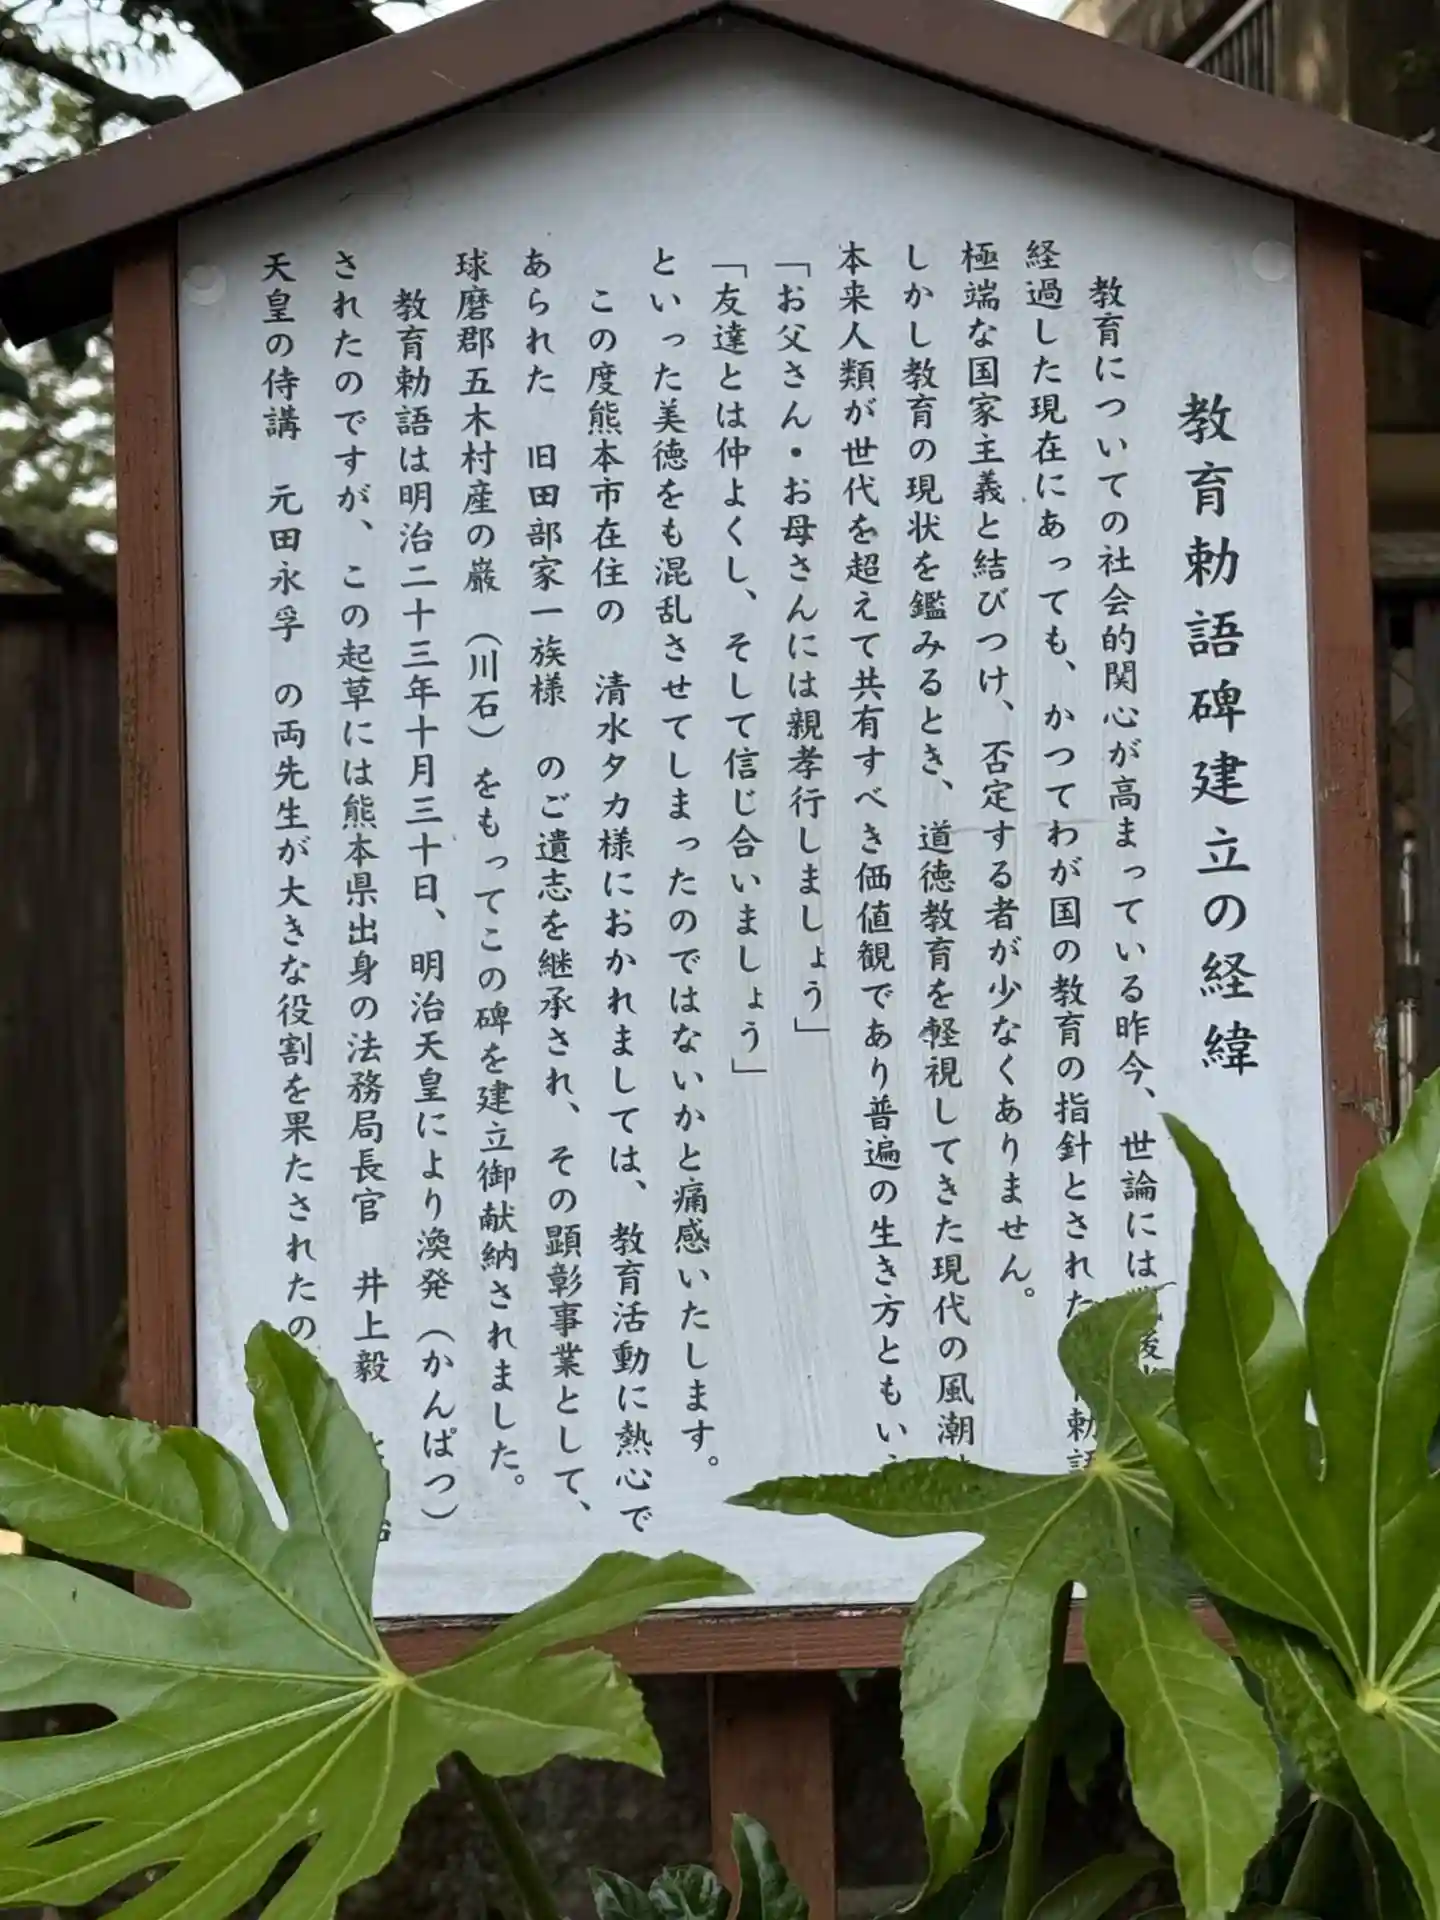 教育勅語碑建立の経緯
教育についての社会的関心が高まっている昨今、世論には
経過した現在にあっても、かつてわが国の教育の指針とされた勅語
極端な国家主義と結びつけ、否定する者が少なくありません。
しかし教育の現状を鑑みるとき、道徳教育を軽視してきた現代の風潮
本来人類が世代を超えて共有すべき価値観であり普遍の生き方ともい
「お父さん・お母さんには親孝行しましょう」
「友達とは仲よくし、そして信じ合いましょう」
といった美徳をも混乱させてしまったのではないかと痛感いたします。
この度熊本市在住の 清水タカ様におかれましては、教育活動に熱心で
あられた 旧田部家一族様 のご遺志を継承され、その顕彰事業として、
球磨郡五木村産の巌（川石）をもってこの碑を建立御献納されました。
教育勅語は明治二十三年十月三十日、明治天皇により渙発（かんぱつ）
されたのですが、この起草には熊本県出身の法務局長官 井上毅
天皇の侍講 元田永孚 の両先生が大きな役割を果たされたの